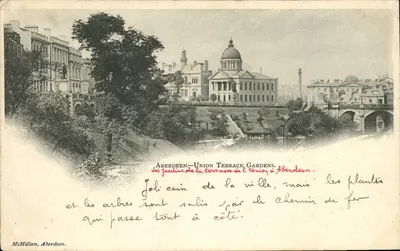 ABERDEEN—UNION TERRACE GARDENS.
Les Jardins de la terrasse de l'Union, à Aberdeen.
Joli coin de la ville, mais les plantes
et les arbres sont salis par le chemin de fer
qui passe tout à côté.
McMillan, Aberdeen.